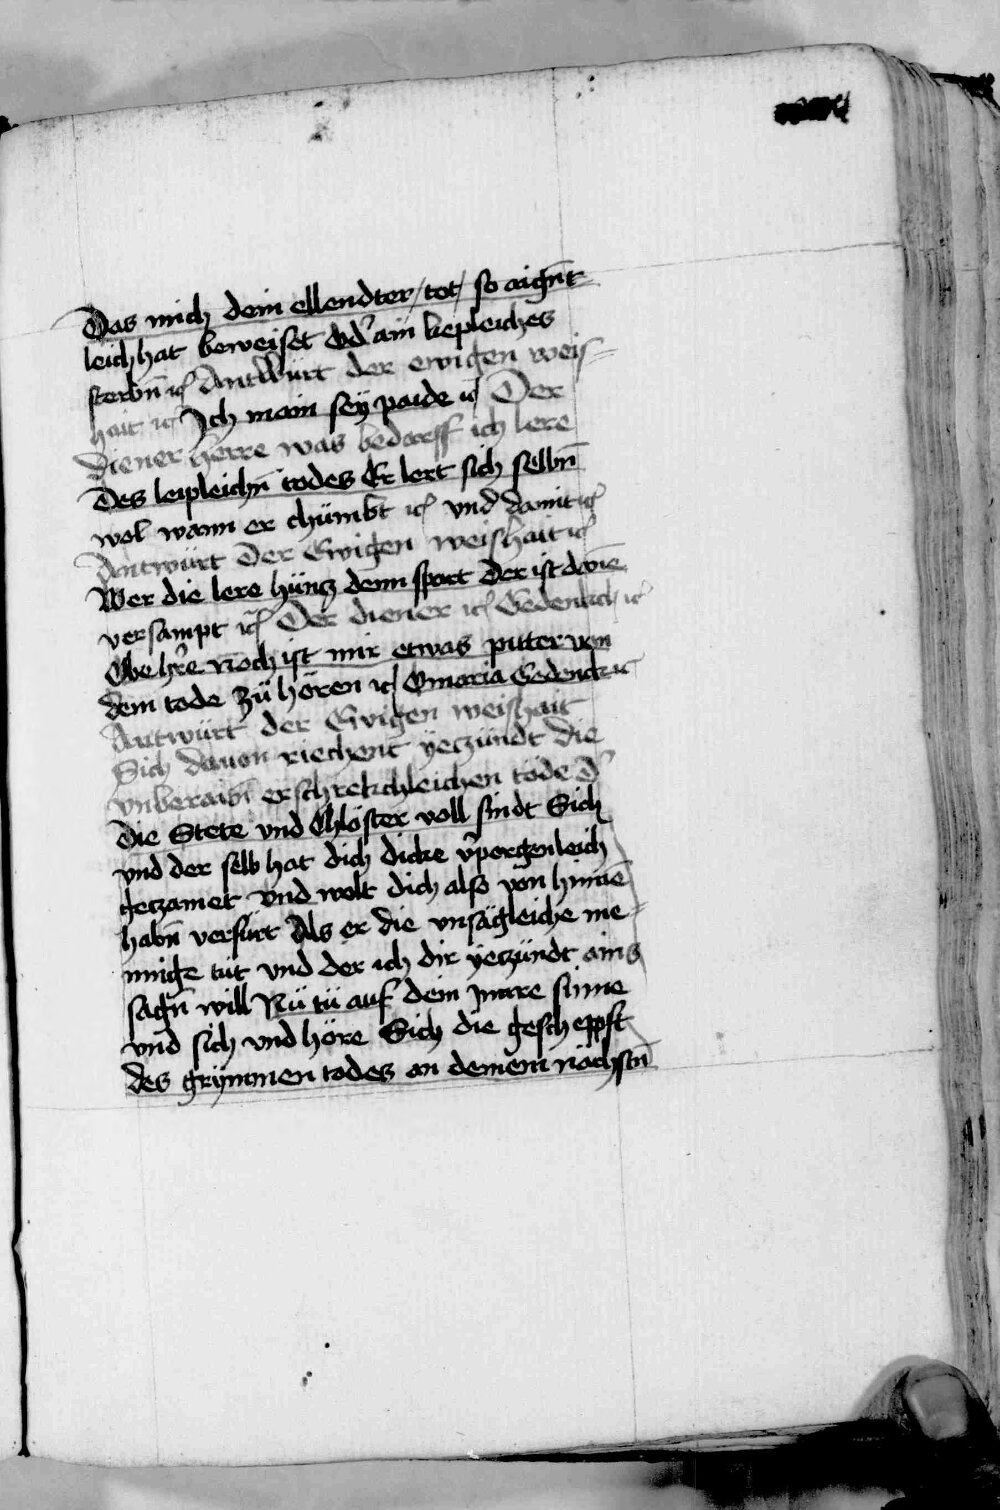 Das mich dein ellendter / tot / so aign̄t
leich hat beweiset Od' ain liepleiches
sterbn̄ ꝛc̄ Antwürt der ewigen weis=
hait ꝛc̄ Ich main sey paide ꝛc̄ Der
diener Herre was bedarff ich lere
Des leipleichn̄ todes Er lert sich selbn̄
wol wann er chümbt ꝛc̄ vnd damit ꝛc̄
Antwürt Der Ewigen weishait ꝛc̄
Wer die lere hüncz denn spart Der ist dan̄e
versampt ꝛc̄ Der diener ꝛc̄ Gedenkch ꝛc̄
Owe hr̄e noch ist mir etwas pitter von
dem tode zü hören ꝛc̄ O maria Gedenck ꝛc̄
Antwürt der Ewigen weishait
Sich dauon riechent yeczündt die
vnberaitn̄ erschrekchleichen tode d'
Die Stete vnd Chlöster voll sindt Sich
vnd der selb hat dich dicke v'porgenleich
geczamet vnd wolt dich also von hinnē
habn̄ verfürt Als er die vnsägleiche me=
nnige tüt vnd der ich dir yeczündt ains
sagn̄ will Nü tü auf dein Jnnre sinne
vnd sich vnd höre Sich die gescheppft
des grymmen todes an deinem nächstn̄